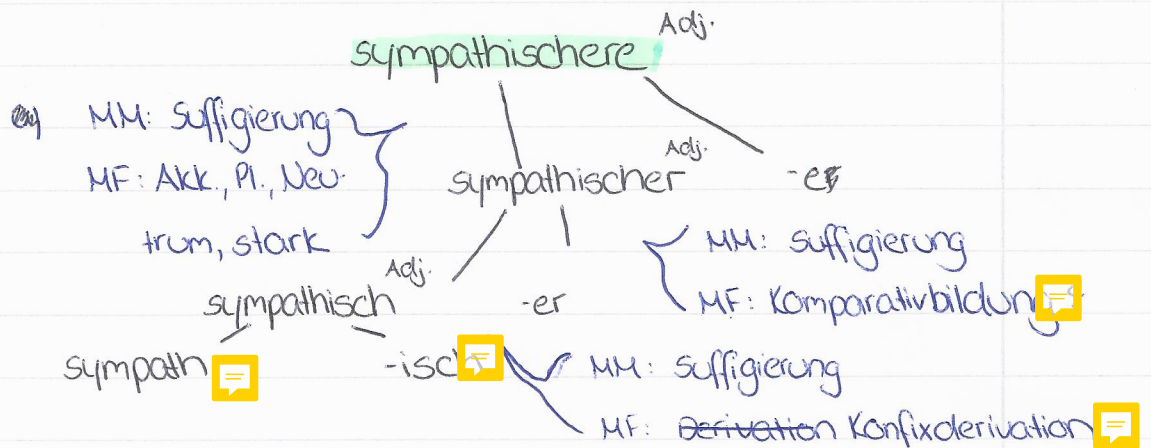 sympathischere Adj.
MM: Suffigierung
MF: Akk., Pl., Neu-
trum, stark
sympathischer Adj. -e
MM: Suffigierung
MF: Komparativbildung
sympathisch Adj. -er
sympath -isch
MM: Suffigierung
MF: Derivation Konfixderivation